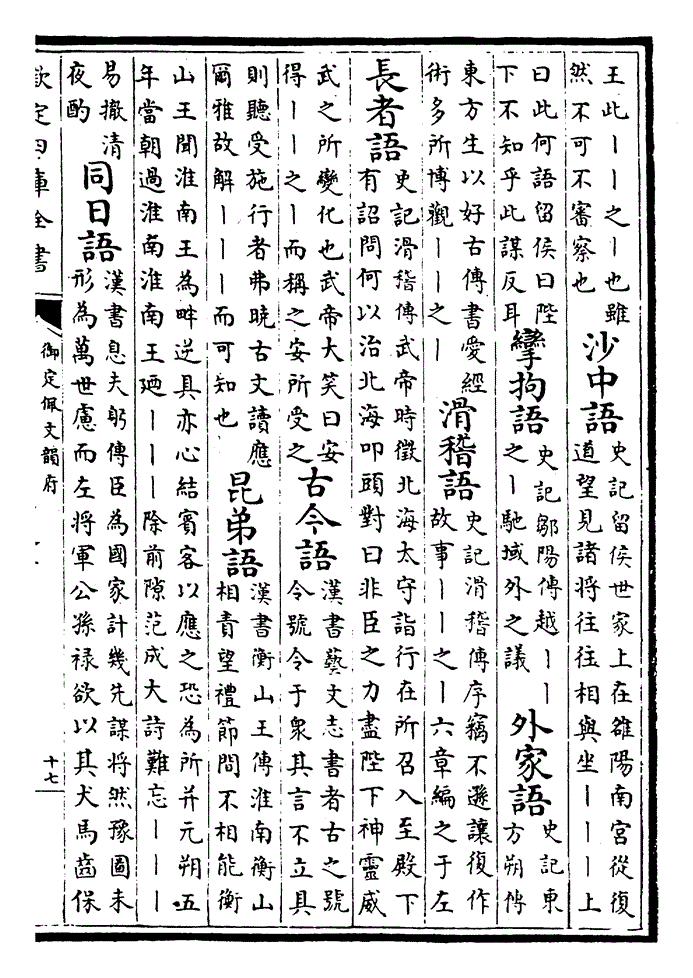 王此丨丨之丨也雖
然不可不審察也
沙中語
史記留侯世家上在雒陽南宮從復
道望見諸將往往相與坐丨丨丨上
曰此何語留侯曰陛
下不知乎此謀反耳
攣拘語
史記鄒陽傳越丨丨
之丨馳域外之議
外家語
史記東
方朔傳
東方生以好古傳書愛經
術多所博觀丨丨之丨
滑稽語
史記滑稽傳序竊不遜讓復作
故事丨丨之丨六章編之于左
長者語
史記滑稽傳武帝時徵北海太守詣行在所召入至殿下
有詔問何以治北海叩頭對曰非臣之力盡陛下神靈威
武之所變化也武帝大笑曰安
得丨丨之丨而稱之安所受之
古今語
漢書藝文志書者古之號
令號令于衆其言不立具
則聽受施行者弗曉古文讀應
爾雅故解丨丨丨而可知也
昆弟語
漢書衡山王傳淮南衡山
相責望禮節間不相能衡
山王聞淮南王為畔逆具亦心結賓客以應之恐為所并元朔五
年當朝過淮南淮南王廼丨丨丨除前隙范成大詩難忘丨丨丨
易撤清
夜酌
同日語
漢書息夫躬傳臣為國家計幾先謀將然豫圖未
形為萬世慮而左將軍公孫祿欲以其犬馬齒保
欽定四庫全書
御定佩文韻府
十七